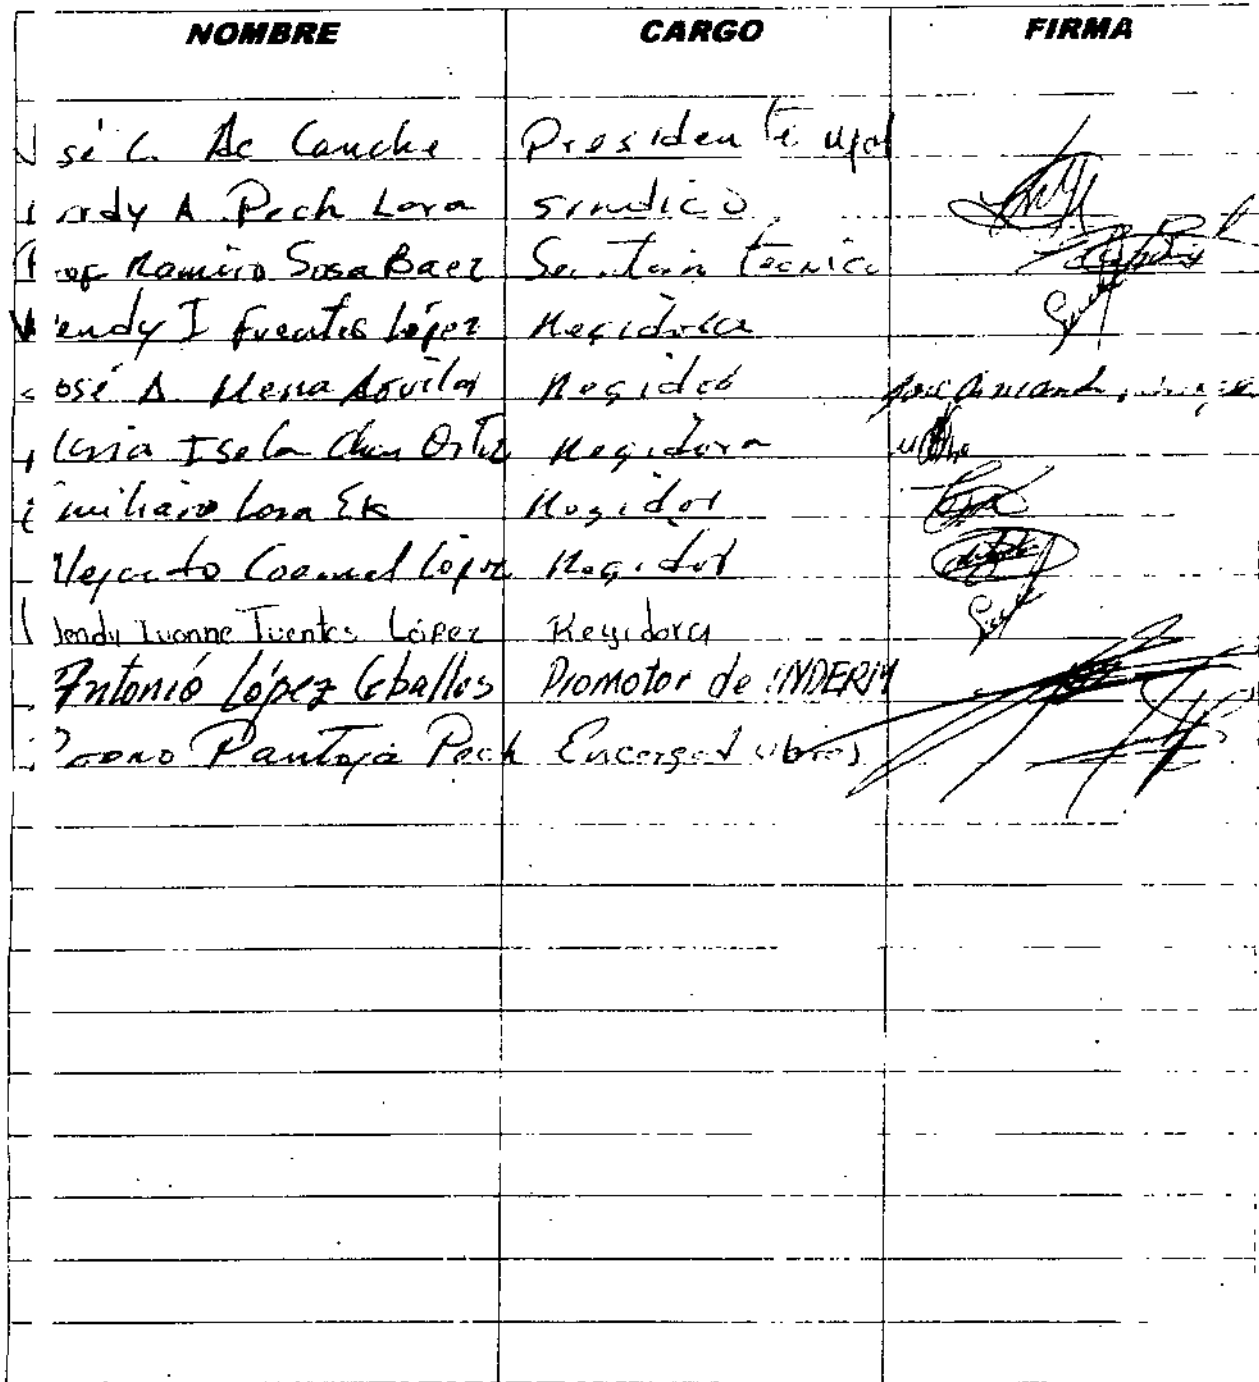 NOMBRE CARGO FIRMA
José C. Ac Canche Presidente mpal
A Pech Lora Sindico
Prof Ramiro Sosa Baez Secretario técnico
Wendy I Fuentes López Regidora
José A. Mena Aguilar Regidor
Maria Isela Chan Ortiz Regidora
Emiliano Lora Ek Regidor
López Regidor
Wendy Ivonne Fuentes López Regidora
Antonio López Ceballos Promotor de INDERM
Pantoja Pech